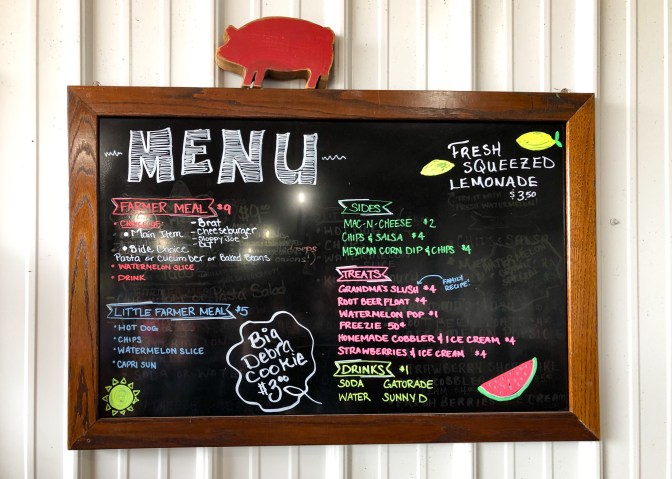 MENU
FRESH
SQUEEZED
LEMONADE
$3.50
FARMER MEAL $9
- Brat
• Main Item - Cheeseburger
- Sloppy Joe
• Side Choice
Pasta or Cucumber or Baked Beans
• WATERMELON SLICE
• DRINK
LITTLE FARMER MEAL $5
• HOT DOG
• CHIPS
• WATERMELON SLICE
• CAPRI SUN
Big
Debra
Cookie
$3.00
SIDES
MAC-N-CHEESE $2
CHIPS & SALSA $4
MEXICAN CORN DIP & CHIPS $4
TREATS
GRANDMA'S SLUSH $4 FAMILY RECIPE
ROOT BEER FLOAT $4
WATERMELON POP $1
FREEZIE 50¢
HOMEMADE COBBLER & ICE CREAM $4
STRAWBERRIES & ICE CREAM $4
DRINKS $1
SODA GATORADE
WATER SUNNY D